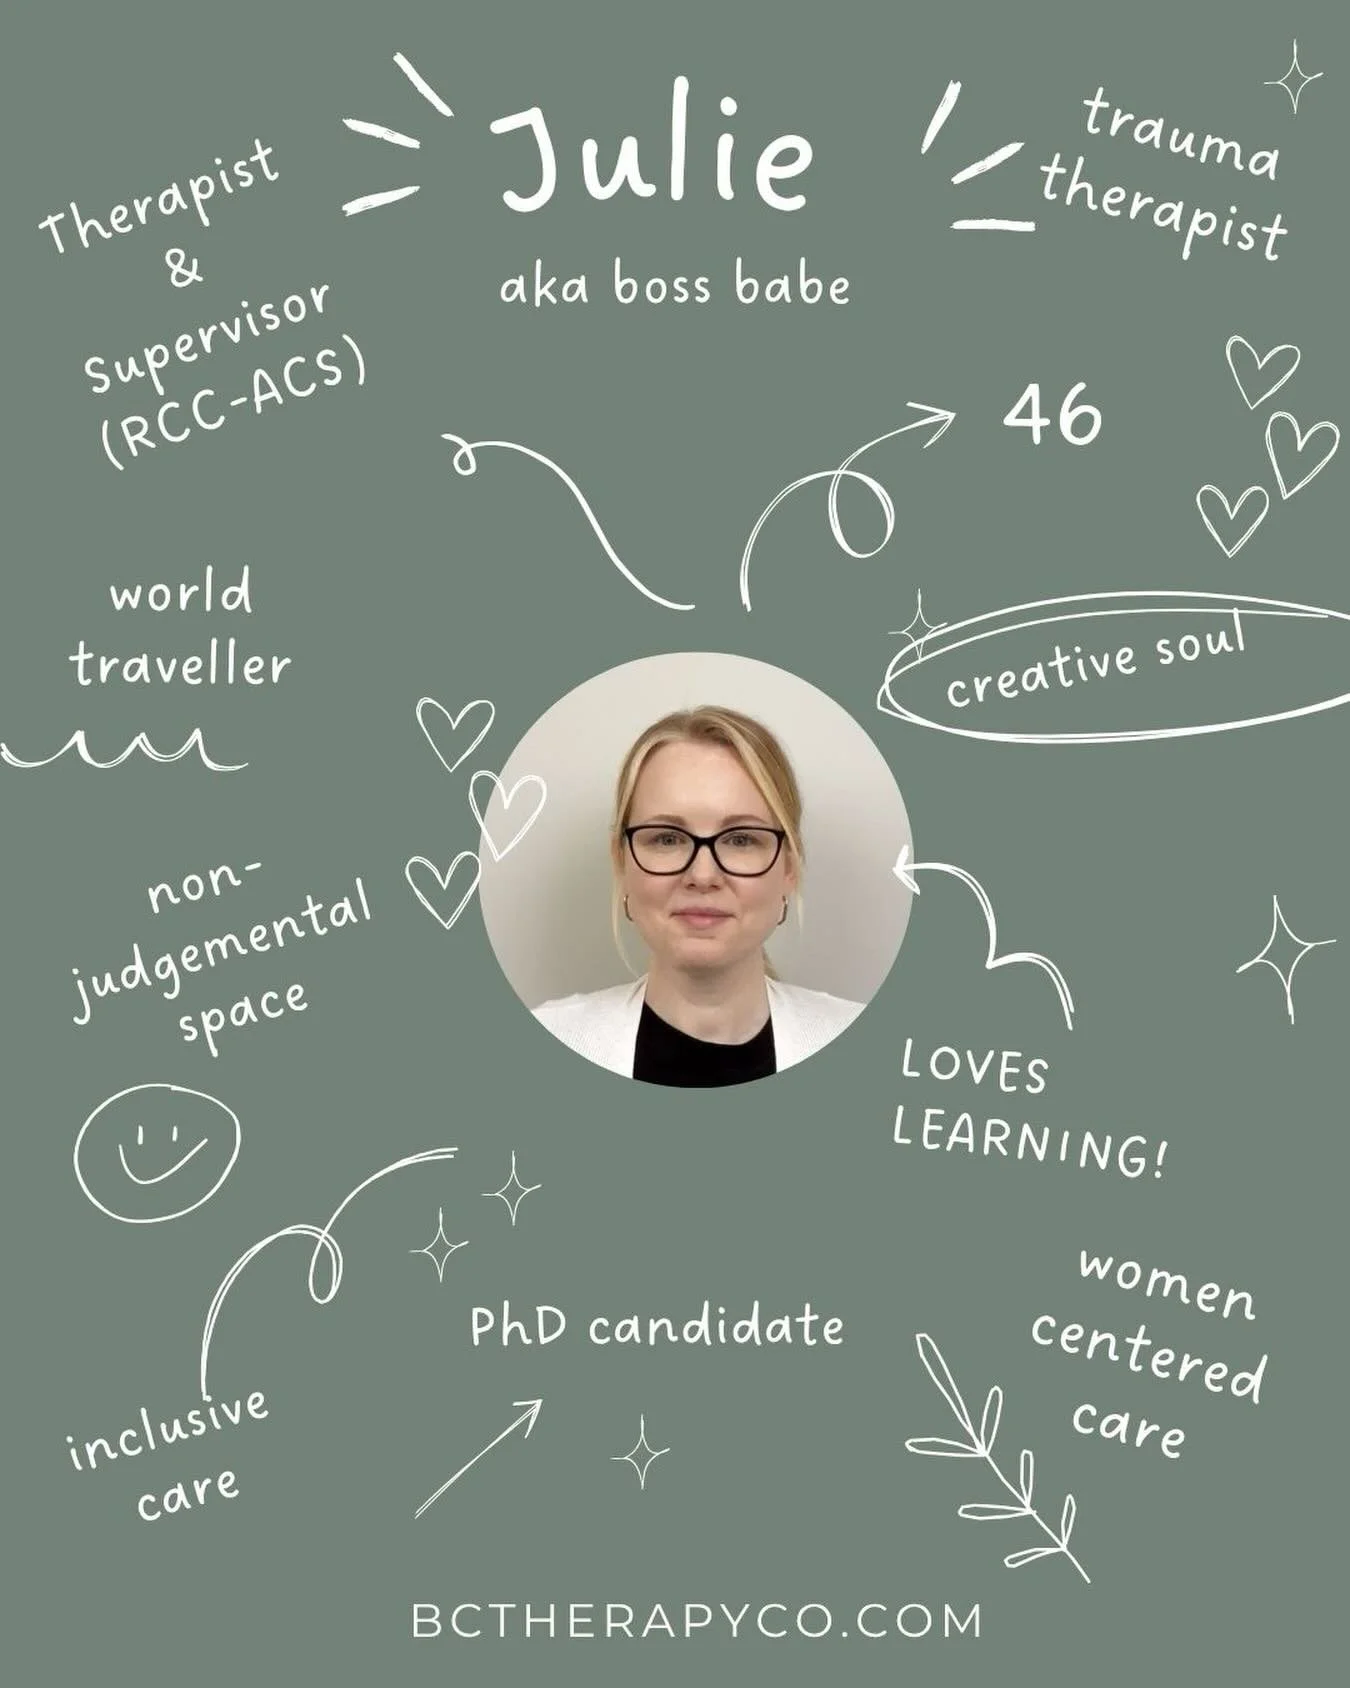 Julie
aka boss babe
Therapist
&
Supervisor
(RCC-ACS)
trauma
therapist
46
world
traveller
creative soul
non-
judgemental
space
LOVES
LEARNING!
PhD candidate
women
centered
care
inclusive
care
BCTHERAPYCO.COM